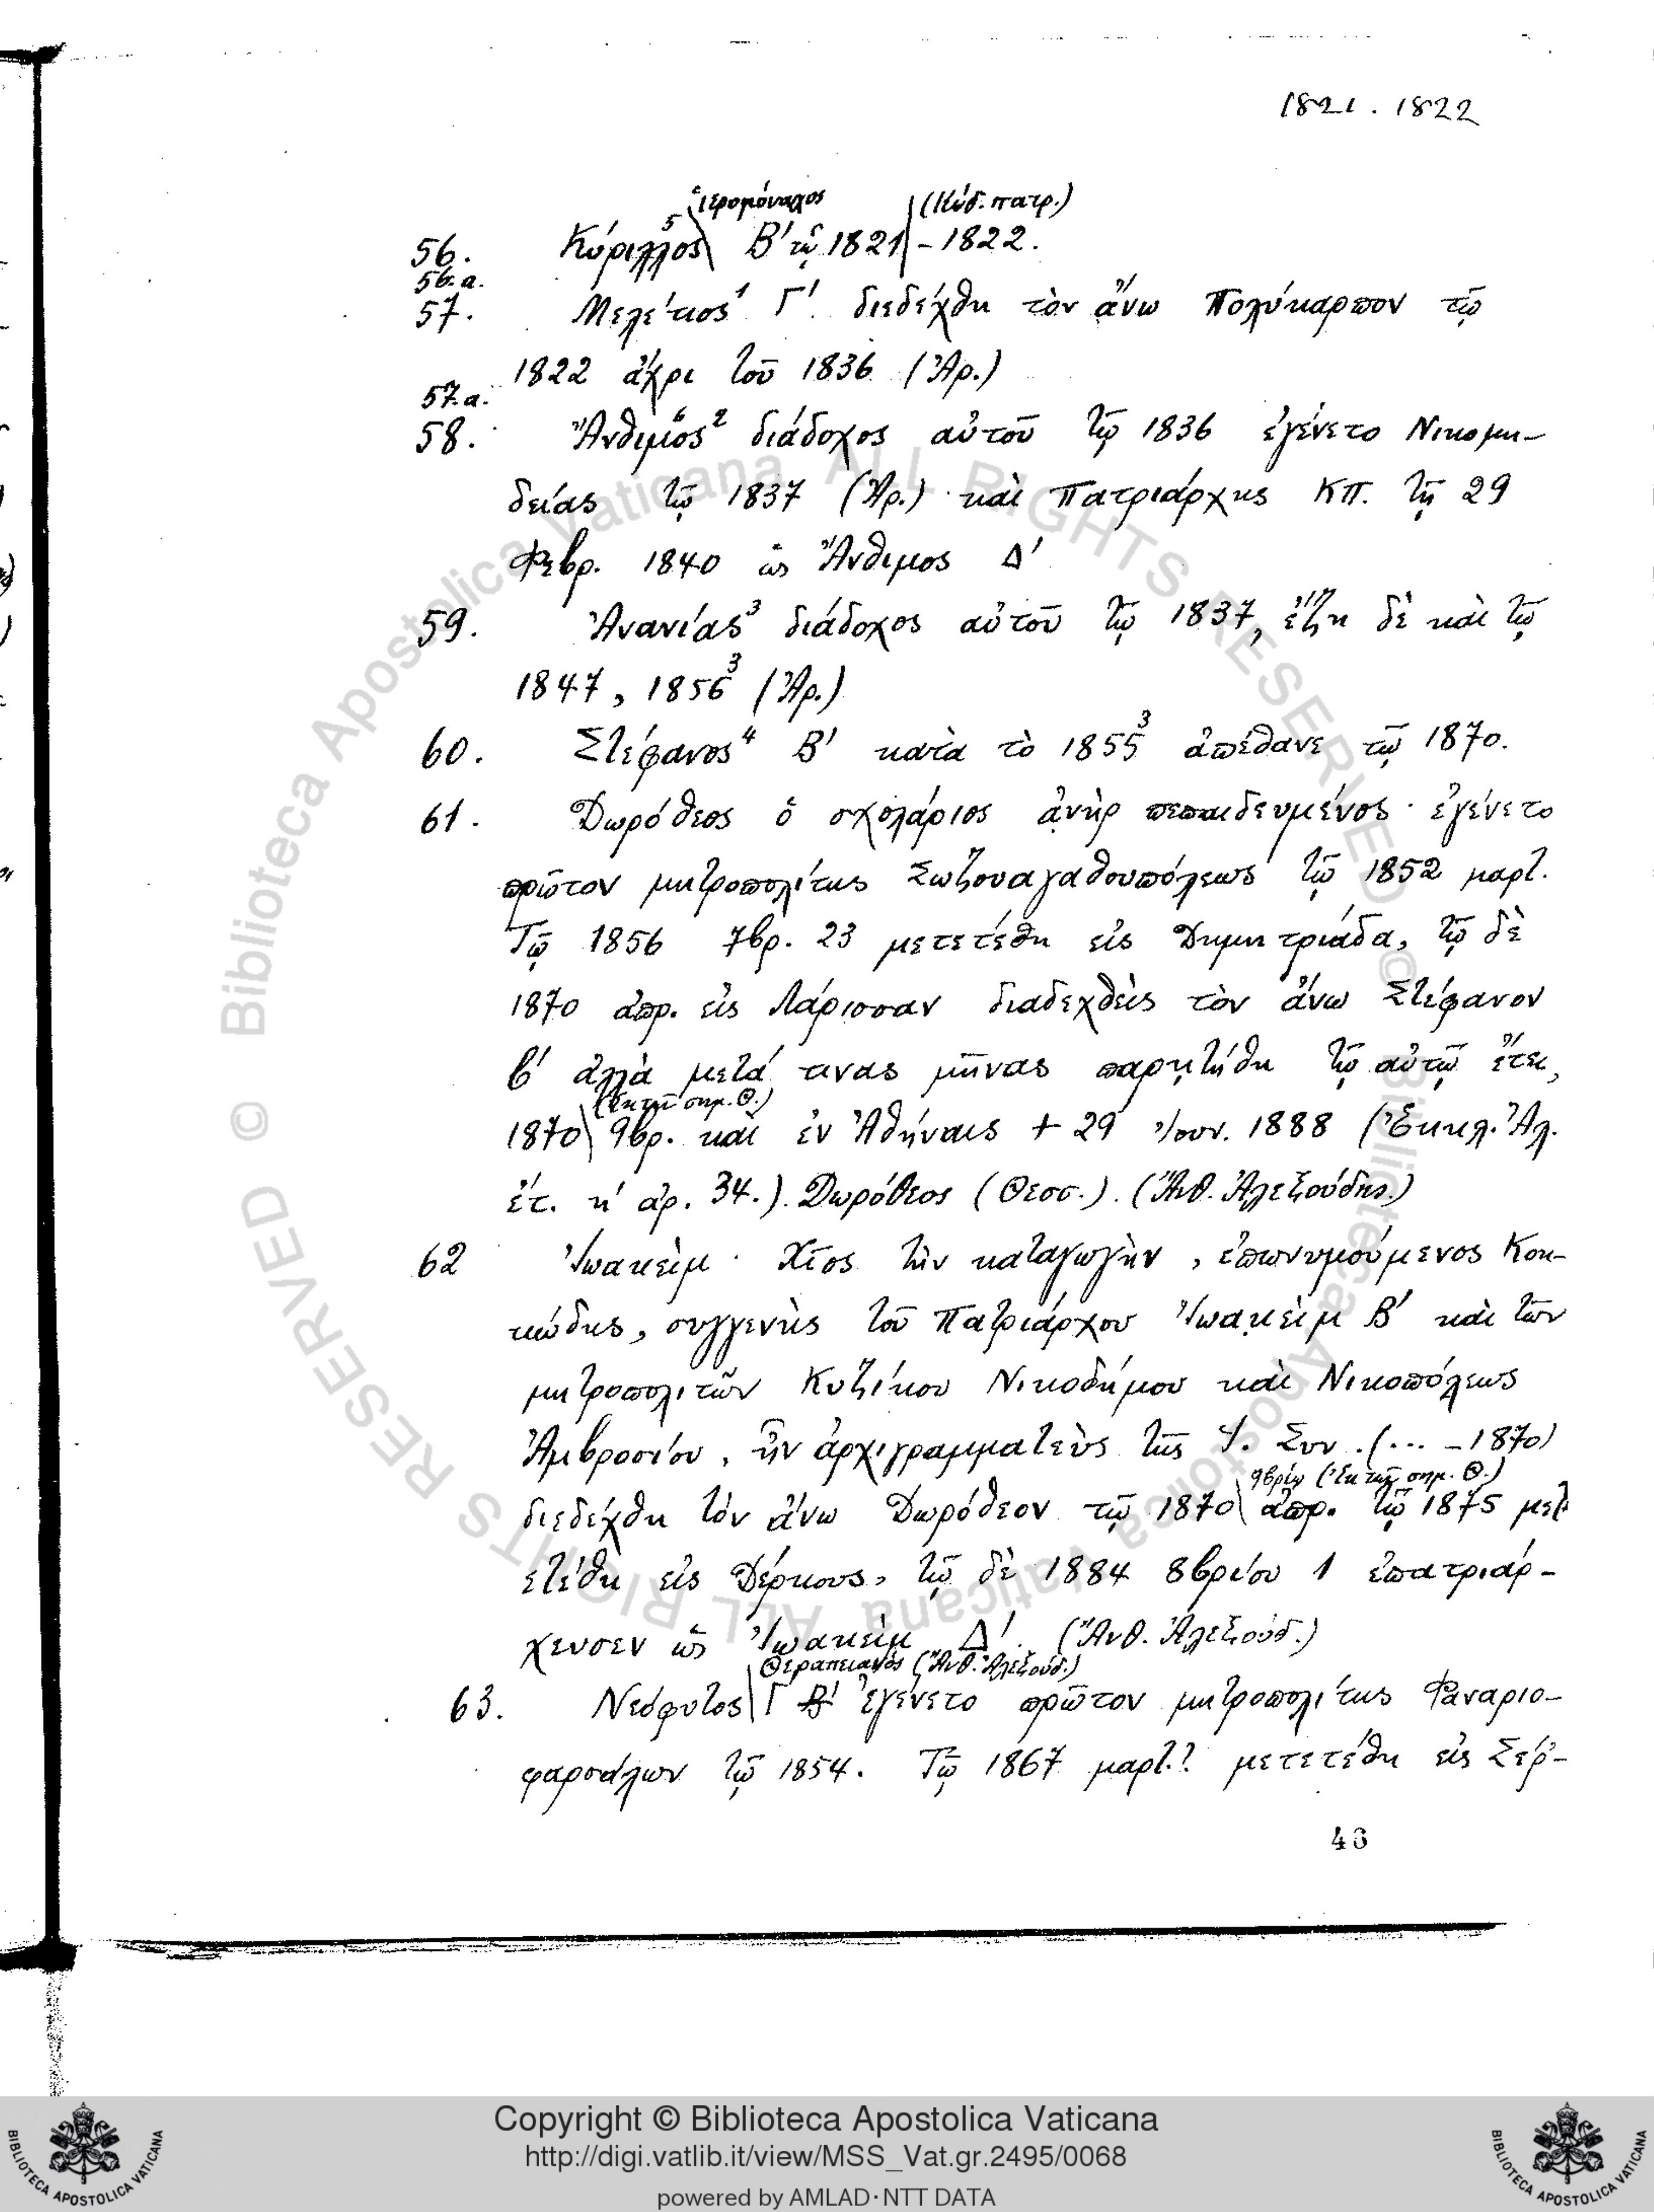 1821. 1822
ἱερομόναχος (Κώδ. πατρ.)
56. Κύριλλος⁵ Β' τῷ 1821 - 1822.
56.α.
57. Μελέτιος¹ Γ' διεδέχθη τὸν ἄνω Πολύκαρπον τῷ
1822 ἄχρι τοῦ 1836 (Ἀρ.)
57.α.
58. Ἄνθιμος² διάδοχος αὐτοῦ τῷ 1836 ἐγένετο Νικομη-
δείας τῷ 1837 (Ἀρ.) καὶ Πατριάρχης ΚΠ. τῇ 29
Φεβρ. 1840 ὡς Ἄνθιμος Δ'
59. Ἀνανίας³ διάδοχος αὐτοῦ τῷ 1837, ἔζη δὲ καὶ τῷ
1847, 1856³ (Ἀρ.)
60. Στέφανος⁴ Β' κατὰ τὸ 1855³ ἀπέθανε τῷ 1870.
61. Δωρόθεος ὁ σχολάριος ἀνὴρ πεπαιδευμένος · ἐγένετο
πρῶτον μητροπολίτης Σωζουαγαθουπόλεως τῷ 1852 μαρτ.
Τῷ 1856 7βρ. 23 μετετέθη εἰς Δημητριάδα, τῷ δὲ
1870 ἀπρ. εἰς Λάρισσαν διαδεχθεὶς τὸν ἄνω Στέφανον
β' ἀλλὰ μετά τινας μῆνας παρῃτήθη τῷ αὐτῷ ἔτει,
(Ἐκ τῶν σημ. Θ.)
1870 9βρ. καὶ ἐν Ἀθήναις + 29 Ἰουν. 1888 (Ἐκκλ. Ἀλ.
ἔτ. η' ἀρ. 34.). Δωρόθεος (Θεσσ.). (Ἄνθ. Ἀλεξούδης.)
62 Ἰωακεὶμ · Χῖος τὴν καταγωγὴν, ἐπωνυμούμενος Κοκ-
κώδης, συγγενὴς τοῦ Πατριάρχου Ἰωακεὶμ Β' καὶ τῶν
μητροπολιτῶν Κυζίκου Νικοδήμου καὶ Νικοπόλεως
Ἀμβροσίου, ἦν ἀρχιγραμματεὺς τῆς Ἱ. Συν. (... - 1870)
9βρίῳ (Ἐκ τῶν σημ. Θ.)
διεδέχθη τὸν ἄνω Δωρόθεον τῷ 1870 ἀπρ. τῷ 1875 μετ
ετέθη εἰς Δέρκους, τῷ δὲ 1884 8βρίου 1 ἐπατριάρ-
χευσεν ὡς Ἰωακεὶμ Δ'. (Ἄνθ. Ἀλεξούδ.)
Θεραπειανός (Ἄνθ. Ἀλεξούδ.)
63. Νεόφυτος Γ Β' ἐγένετο πρῶτον μητροπολίτης Φαναριο-
φαρσάλων τῷ 1854. Τῷ 1867 μαρτ.? μετετέθη εἰς Σέρ-
46
© Biblioteca Apostolica Vaticana ALL RIGHTS RESERVED
© Biblioteca Apostolica Vaticana ALL RIGHTS RESERVED
Copyright © Biblioteca Apostolica Vaticana
http://digi.vatlib.it/view/MSS_Vat.gr.2495/0068
powered by AMLAD·NTT DATA
BIBLIOTECA APOSTOLICA VATICANA
BIBLIOTECA APOSTOLICA VATICANA